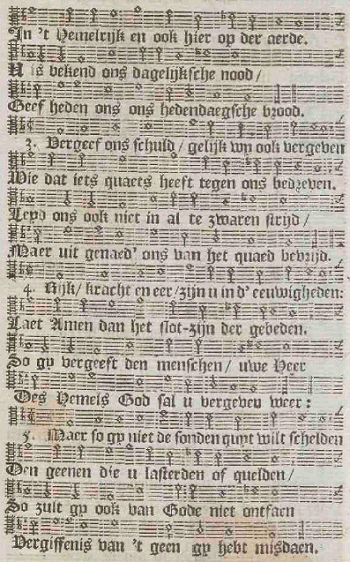 In 't Hemelrijk en ook hier op der aerde.
U is bekend ons dagelijksche nood /
Geef heden ons ons hedendaegsche brood.
3. Vergeef ons schuld / gelijk wy ook vergeven
Wie dat iets quaets heeft tegen ons bedreven.
Leyd ons ook niet in al te zwaren strijd /
Maer uit genaed' ons van het quaed bevrijd.
4. Rijk / kracht en eer / zijn u in d' eeuwigheden:
Laet Amen dan het slot-zijn der gebeden.
So gy vergeeft den menschen / uwe Heer
Des Hemels God sal u vergeven weer:
5. Maer so gy niet de sonden quyt wilt schelden
Den geenen die u lasterden of quelden /
So zult gy ook van Gode niet ontfaen
Vergiffenis van 't geen gy hebt misdaen.